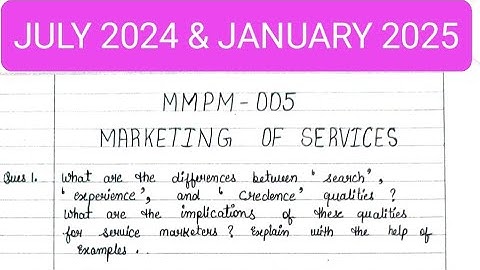 JULY 2024 & JANUARY 2025
MMPM-005
MARKETING OF SERVICES
Ques 1. What are the differences between ' search ' ,
' experience ' , and ' Credence ' qualities ?
What are the implications of these qualities
for service marketers ? Explain with the help of
Examples . .